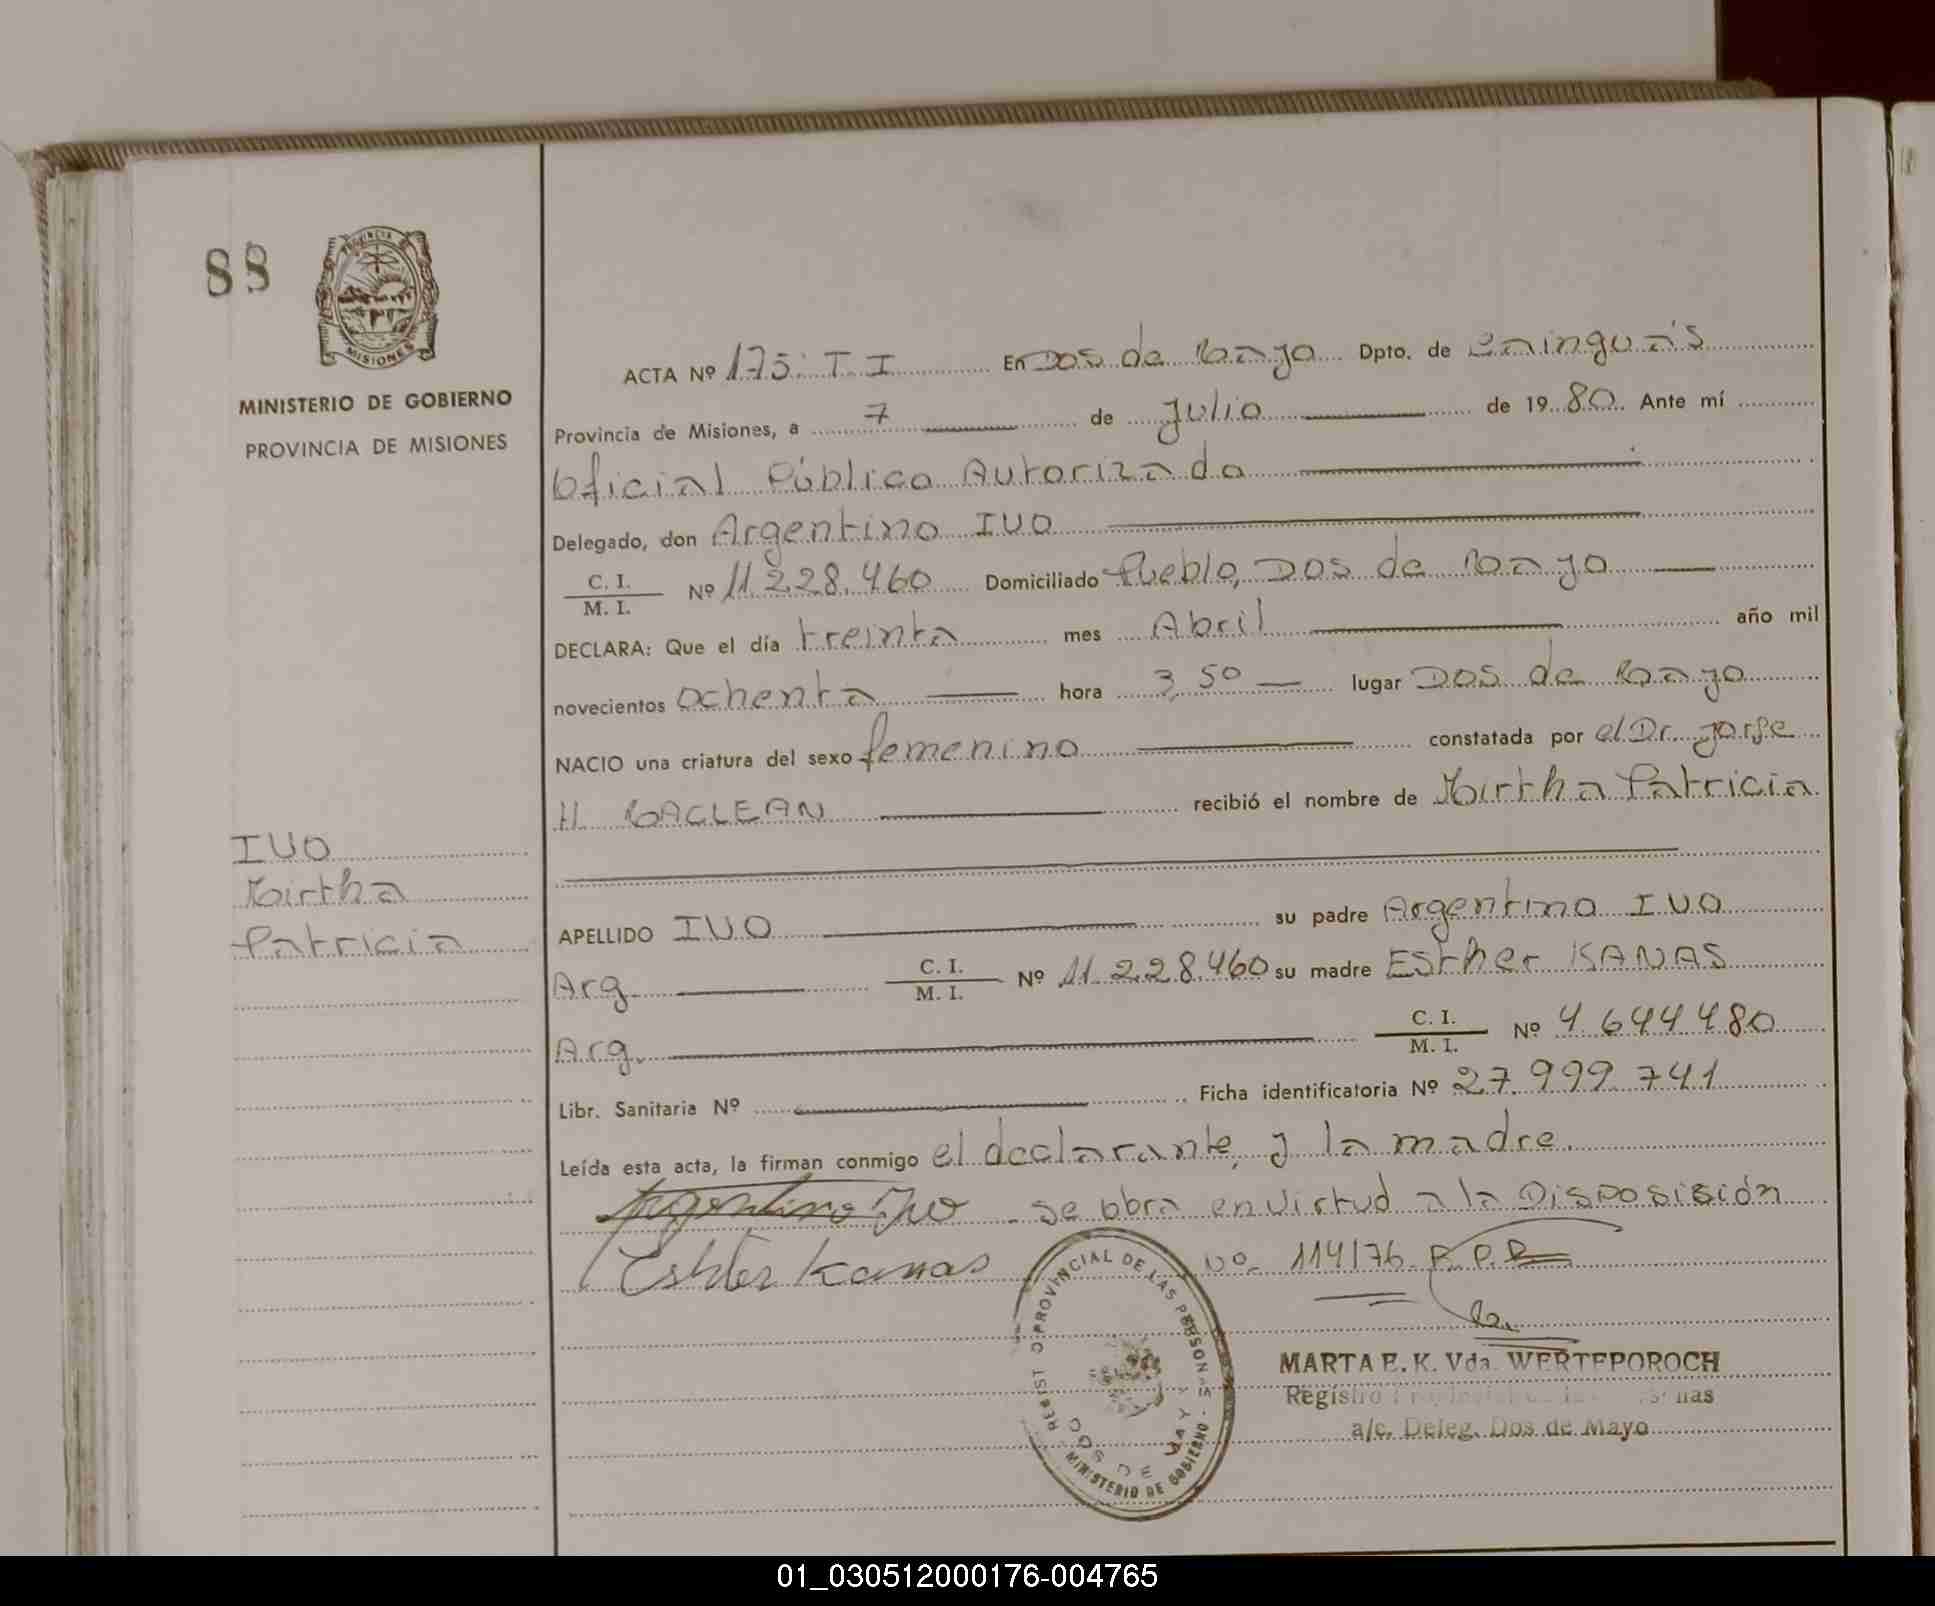 88
PROVINCIA DE
MISIONES
MINISTERIO DE GOBIERNO
PROVINCIA DE MISIONES
IVO
Mirtha
Patricia
ACTA Nº 175: T I En Dos de Mayo Dpto. de Cainguás
Provincia de Misiones, a 7 de Julio de 1980 Ante mí
Oficial Público Autorizado
Delegado, don Argentino IVO
C. I. / M. I. Nº 11.228.460 Domiciliado Pueblo, Dos de Mayo
DECLARA: Que el día treinta mes Abril año mil
novecientos ochenta hora 3,50 lugar Dos de Mayo
NACIO una criatura del sexo femenino constatada por el Dr. Jorge
H. MACLEAN recibió el nombre de Mirtha Patricia
APELLIDO IVO su padre Argentino IVO
Arg. C. I. / M. I. Nº 11.228.460 su madre Esther KANAS
Arg. C. I. / M. I. Nº 4.644.480
Libr. Sanitaria Nº Ficha identificatoria Nº 27.999.741
Leída esta acta, la firman conmigo el declarante, y la madre.
Argentino Ivo - se obra en virtud a la Disposisión
Esther Kanas Nº 114/76 R.P.P.
REGISTRO PROVINCIAL DE LAS PERSONAS - MINISTERIO DE GOBIERNO
DOS DE MAYO
MARTA E. K. Vda. WERTEPOROCH
Registro Provincial de las Personas
a/c. Deleg. Dos de Mayo
01_030512000176-004765